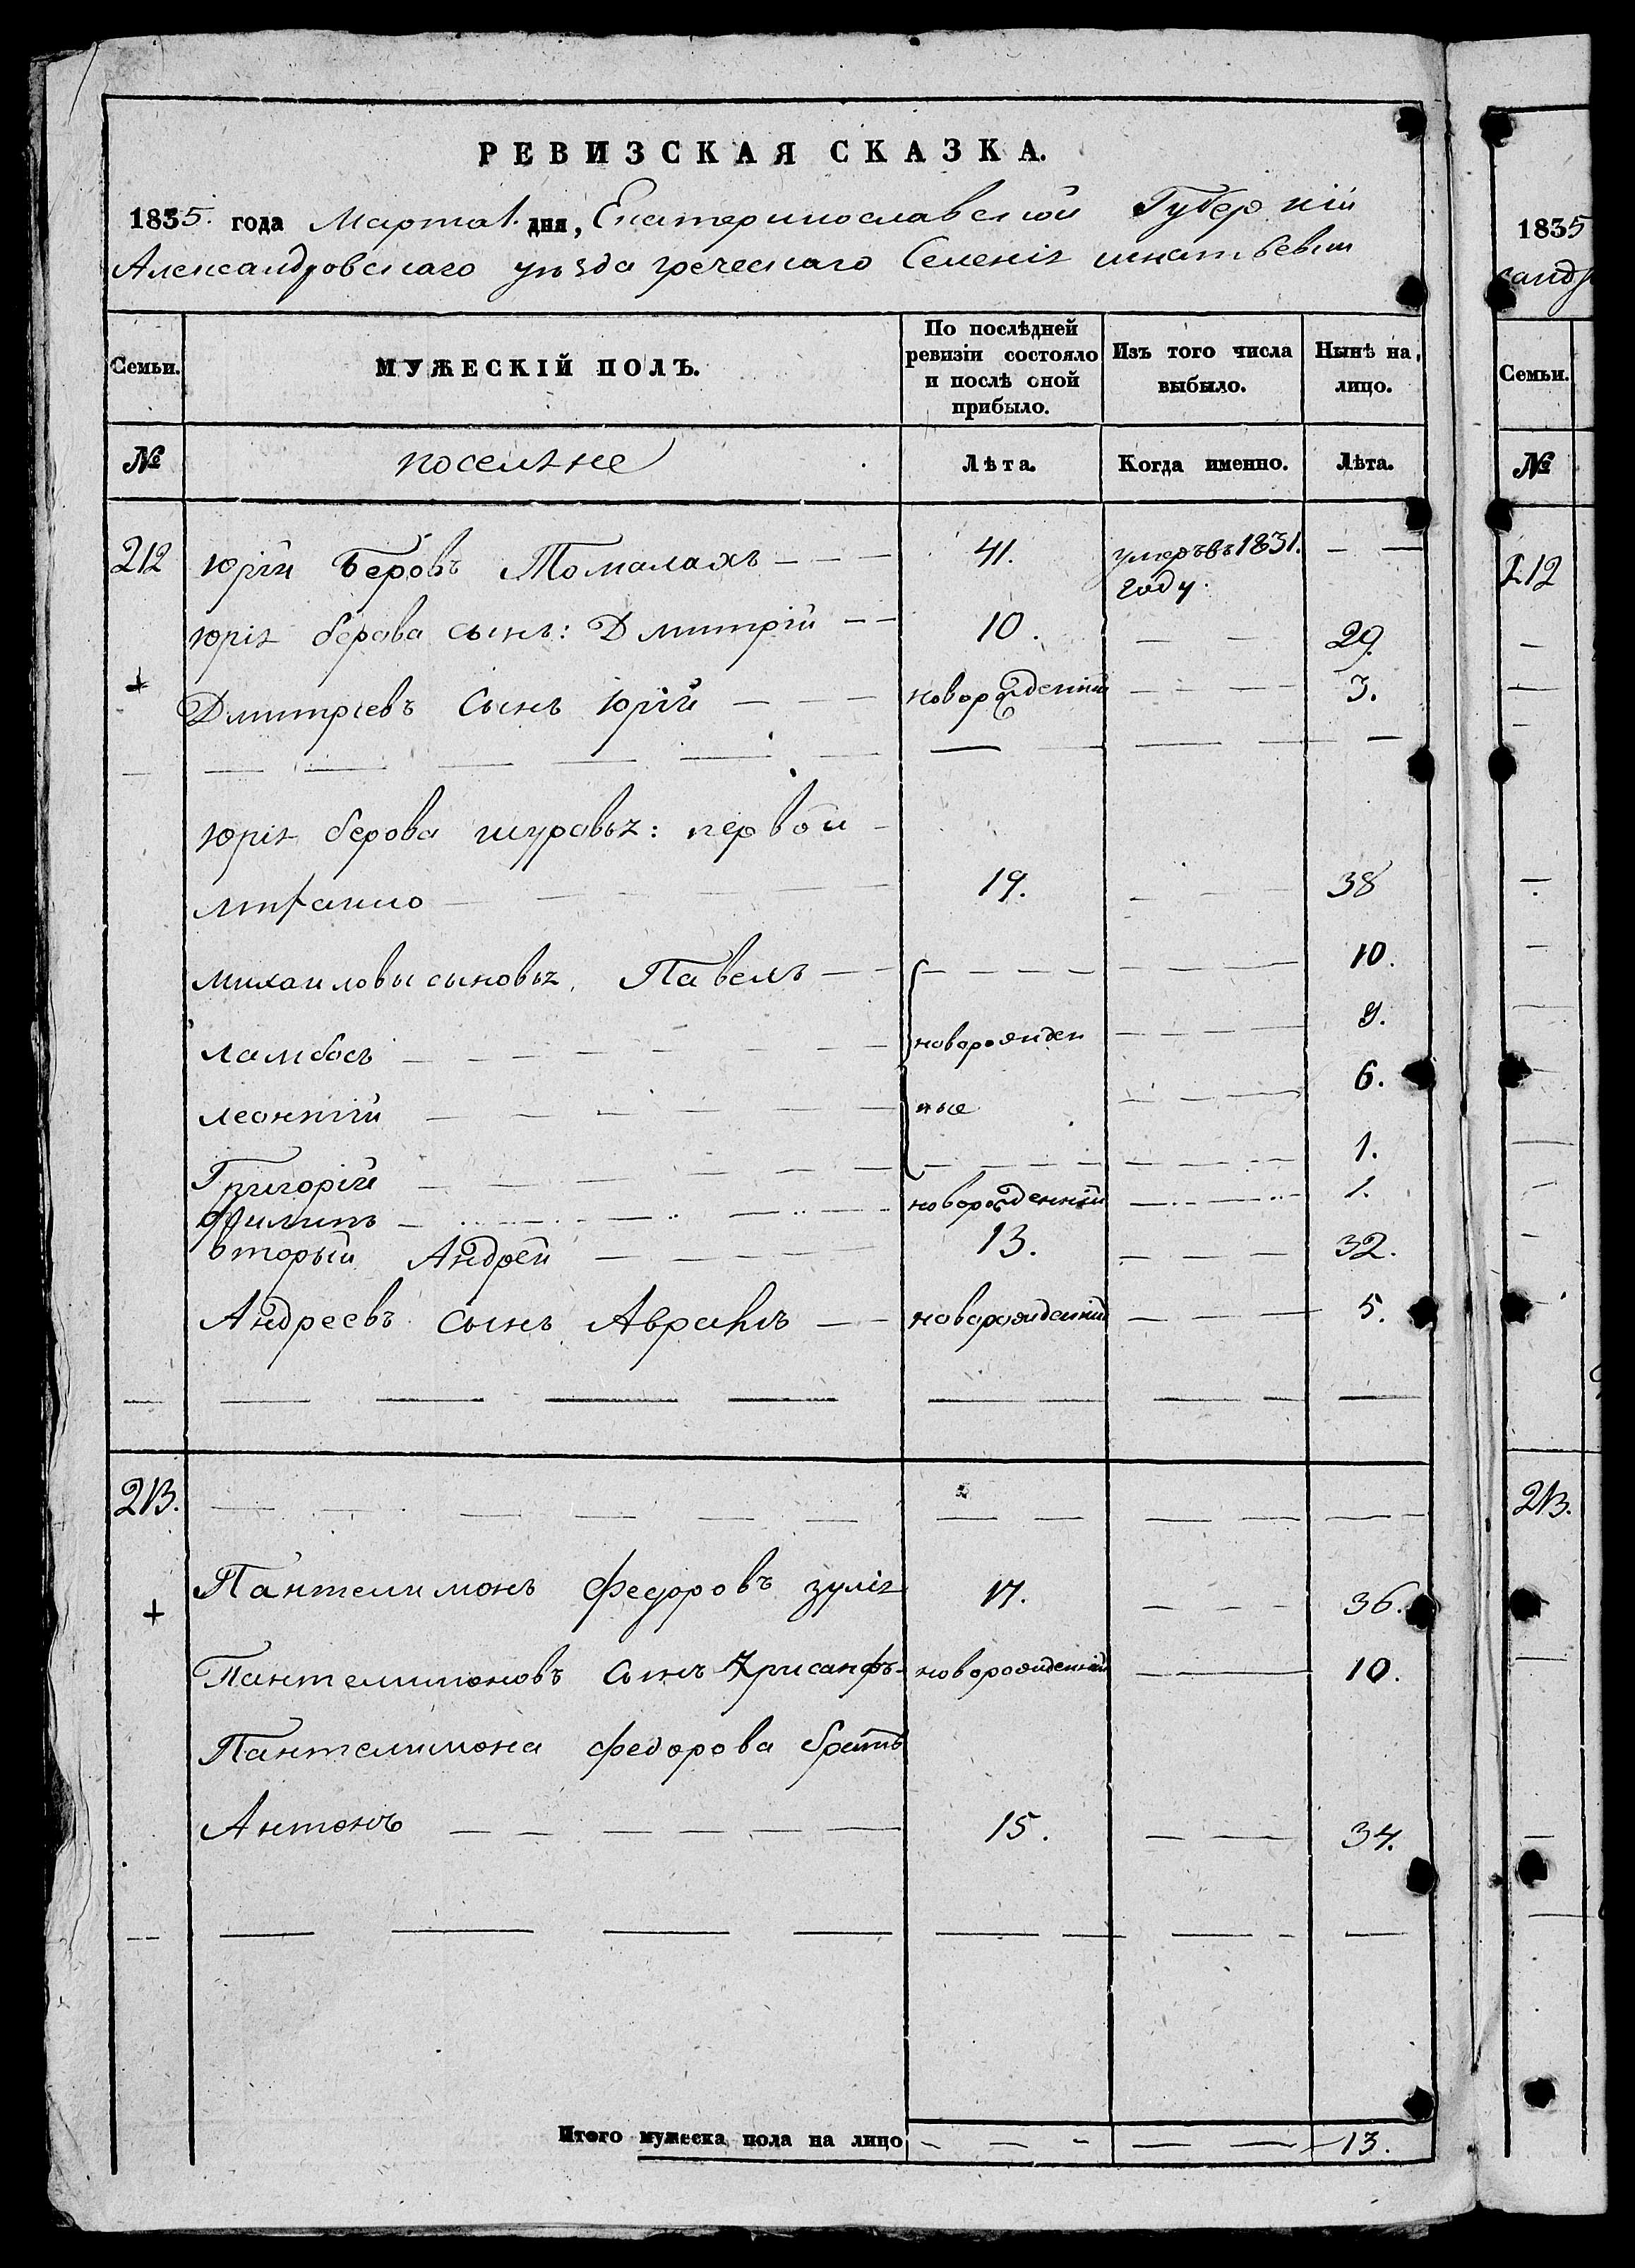 РЕВИЗСКАЯ СКАЗКА.
1835. года Марта 1. дня, Екатеринославской Губерніи
Александровскаго уѣзда греческаго Селенія игнатьевки
Семьи. МУЖЕСКІЙ ПОЛЪ. По послѣдней ревизіи состояло и послѣ оной прибыло. Изъ того числа выбыло. Нынѣ на лицо.
№ поселяне Лѣта. Когда именно. Лѣта.
212 Юрій Беровъ Томалахъ — — 41. умеръ въ 1831. году. — —
юрія берова сынъ: Дмитрій — — 10. — — 29.
+ Дмитріевъ Сынъ Юрій — — новорожденній — — — 3.
юрія берова шуравья: первои —
михаило — — — — — 19. — — — 38
михаиловы сыновья, Павелъ — — — — — — — — — 10.
ламбосъ — — — — — — — новорожден — — — — 9.
леонтій — — — — — — ные — — — — 6.
Григорій — — — — — — — — — — — 1.
филипъ — — — — новорожденній — — 1.
вторый Андрей — — — — 13. — — — 32.
Андреевъ сынъ Авраамъ — — новорожденній — — — 5.
213. — — — — — — — — — — — —
+ Пантелимонъ Федоровъ зулія 17. — — — 36.
Пантелимоновъ сынъ Хрисанфъ — новорожденній — 10.
Пантелимона федорова братъ
Антонъ — — — — — — 15. — — 34.
Итого мужеска пола на лицо — — — — — 13.
1835
Семьи.
№
212
213.